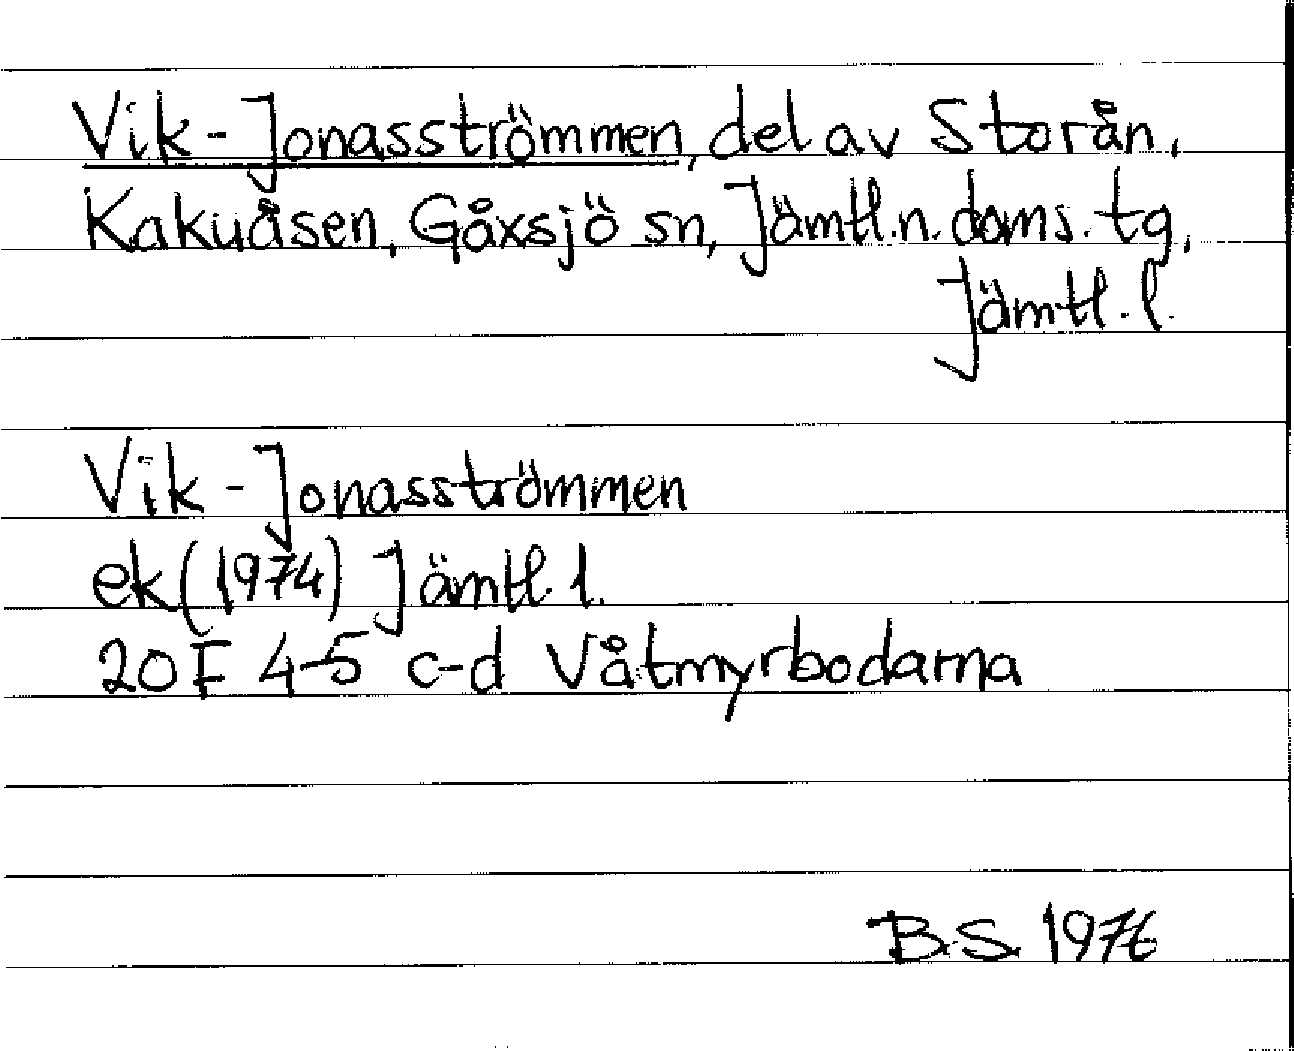 Vik-Jonasströmmen, del av Storån,
Kakuåsen, Gåxsjö sn, Jämtl.n.doms.tg,
Jämtl.l.
Vik-Jonasströmmen
ek(1974) Jämtl.l.
20F 4-5 c-d Våtmyrbodarna
B.S. 1976